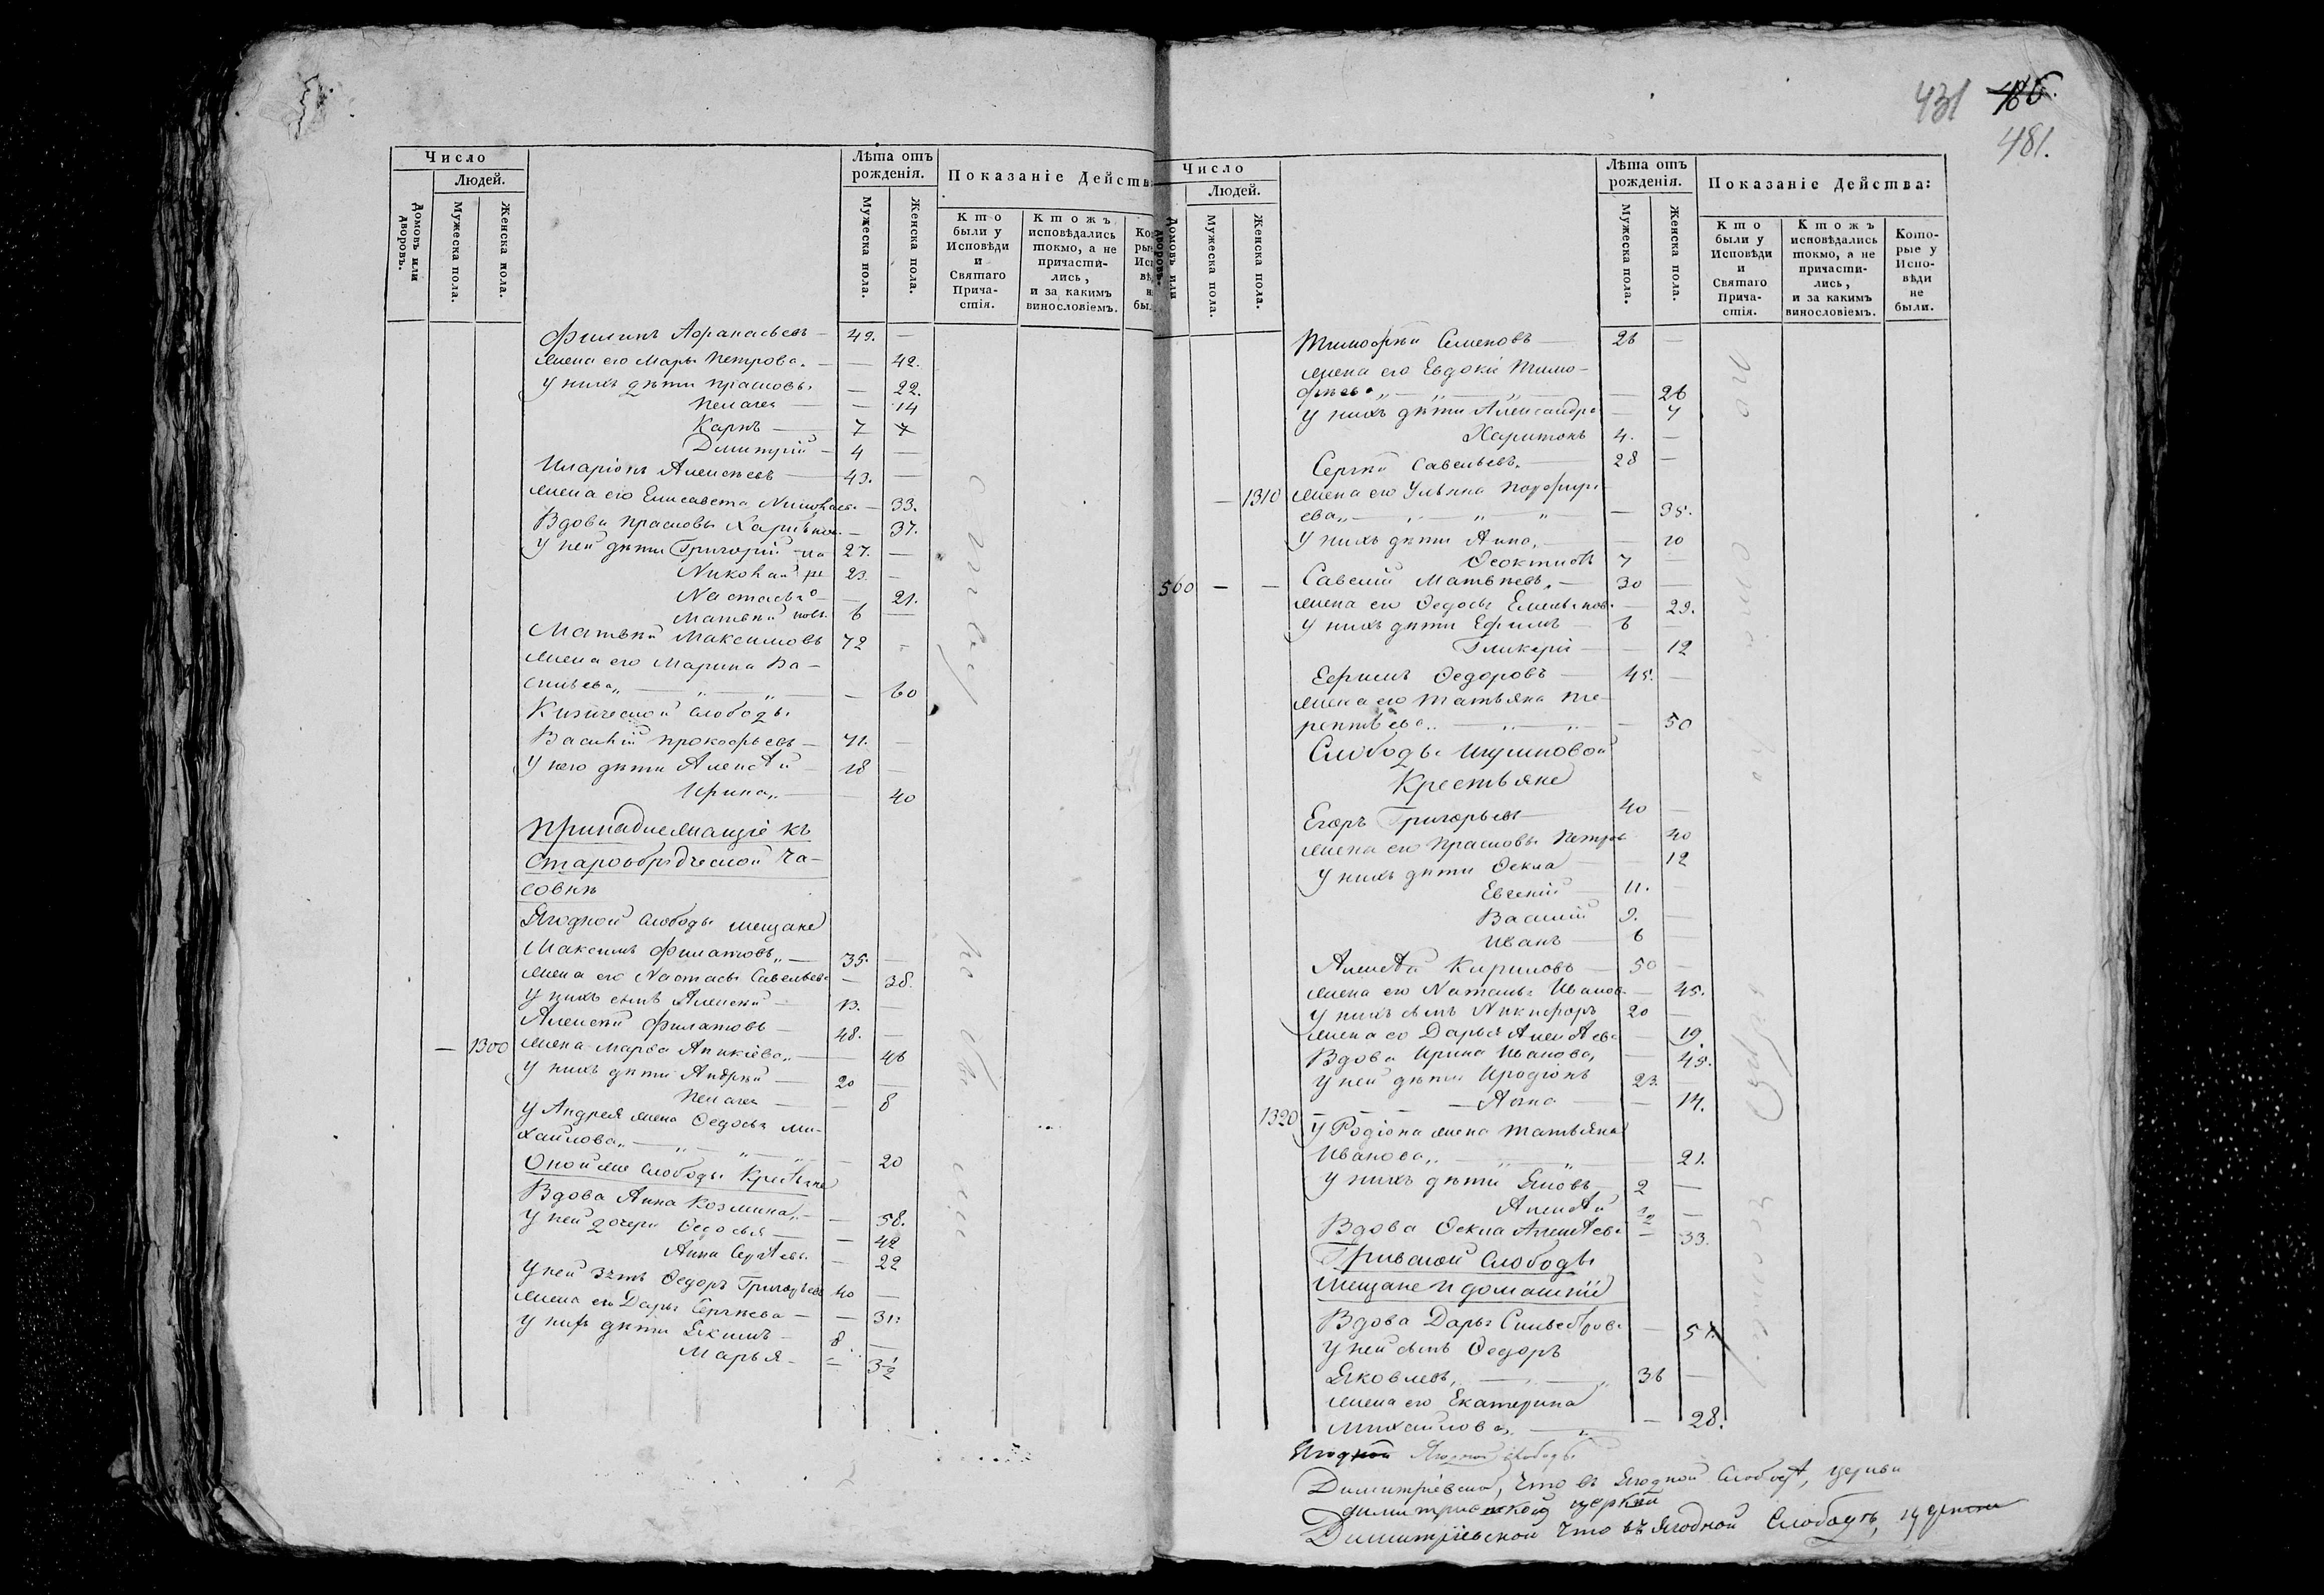 Число
Людей.
Домовъ или дворовъ.
Мужеска пола.
Женска пола.
Лѣта отъ рожденія.
Мужеска пола.
Женска пола.
Показаніе Действ
Кто были у Исповѣди и Святаго Прича-стія.
Ктожъ исповѣдались токмо, а не причасти-лись, и за какимъ винословіемъ.
Филипъ Афанасьевъ — 49. —
жена его Марья Петрова. — 42.
У нихъ дѣти Прасковья — 22.
Пелагея — 14
Карпъ — 7
Димитрій — 4 —
Иларіонъ Алексѣевъ — 43. —
жена его Елисавета Николаева — 33.
Вдова Прасковья — 37.
У ней дѣти Григорій 27. —
Николай 23. —
Настасья — 21.
Матвѣй 6 —
Матвѣй Максимовъ 72 -
жена его Марина Ва-
сильева„ — „ — „ — 60
Кизической слободы
Василій Прокофьевъ — 71. —
У него дѣти Алексѣй 18 —
Ирина„ — 40
Принадлежащіе къ
Старообрядческой Ча-
совнѣ
Ягодной слободы мещане
Максимъ Филатовъ„ — 35. —
жена его Настасья Савельева — 38.
У нихъ сынъ Алексѣй — 13. —
Алексѣй Филатовъ — 48. —
— 1300 жена Марѳа Аникіева„ — 46
У нихъ дѣти Андрѣй — 20 —
Пелагея — 8
У Андрея жена Ѳедосья Ми-
хайлова„ — „ — „ — 20
Оной же слободы Крестьяне
Вдова Анна Козмина„ — 58.
У ней дочери Ѳедосья — 42
Анна Сергѣева — 22
У ней зять Ѳедоръ Григорьевъ 40 —
жена его Дарья Сергѣева — 31.
У нихъ дѣти Якимъ — 8 —
Марья — 3½
431 486.
481.
Число
Людей.
Домовъ или дворовъ.
Мужеска пола.
Женска пола.
Лѣта отъ рожденія.
Мужеска пола.
Женска пола.
Показаніе Действа:
Кто были у Исповѣди и Святаго Прича-стія.
Ктожъ исповѣдались токмо, а не причасти-лись, и за какимъ винословіемъ.
Кото-рые у Испо-вѣди не были.
Тимофѣй Семеновъ — 26 —
жена его Евдокія Тимо-
фѣева„ — „ — „ — 26
У нихъ дѣти Александра — 7
Харитонъ 4. —
Сергѣй Савельевъ. — 28 —
— 1310 жена его Ульяна Порфирь-
ева„ — „ — „ — 35.
У нихъ дѣти Анна, — 10
Ѳеоктистъ 7 —
560 — — Савелій Матвѣевъ, — 30 —
жена его Ѳедосья Емельянова — 29.
У нихъ дѣти Ефимъ — 6
Гликерія — 12
Ефимъ Ѳедоровъ — 45. —
жена его Татьяна Те-
рентьева„ — „ — „ — 50
Слободы Игумновой
Крестьяне
Егоръ Григорьевъ — 40 —
жена его Прасковья Петрова 40
У нихъ дѣти Ѳекла — 12
Евгеній — 11. —
Василій 9. —
Иванъ — 6 —
Алексѣй Кириловъ — 50 —
жена его Наталья Иванова — 45.
У нихъ сынъ Никифоръ 20 —
жена его Дарья Алексѣева — 19.
Вдова Ирина Иванова, — 45.
У ней дѣти Иродіонъ 23. —
— Анна — 14.
1320 У Родіона жена Татьяна
Иванова„ — „ — 21.
У нихъ дѣти Яковъ — 2 —
Алексѣй ½ —
Вдова Ѳекла Алексѣева — 33.
Гривской слободы
Мещане и домашніи
Вдова Дарья Сильвестрова — 57.
У ней сынъ Ѳедоръ
Яковлевъ„ — „ 36 —
жена его Екатерина
Михайлова„ — „ — 28.
Ягодной Ягодной слободы
Димитріевской, что въ Ягодной Слободѣ, церкви
димитриевской церкви
Димитріевской что въ Ягодной Слободѣ, церкви